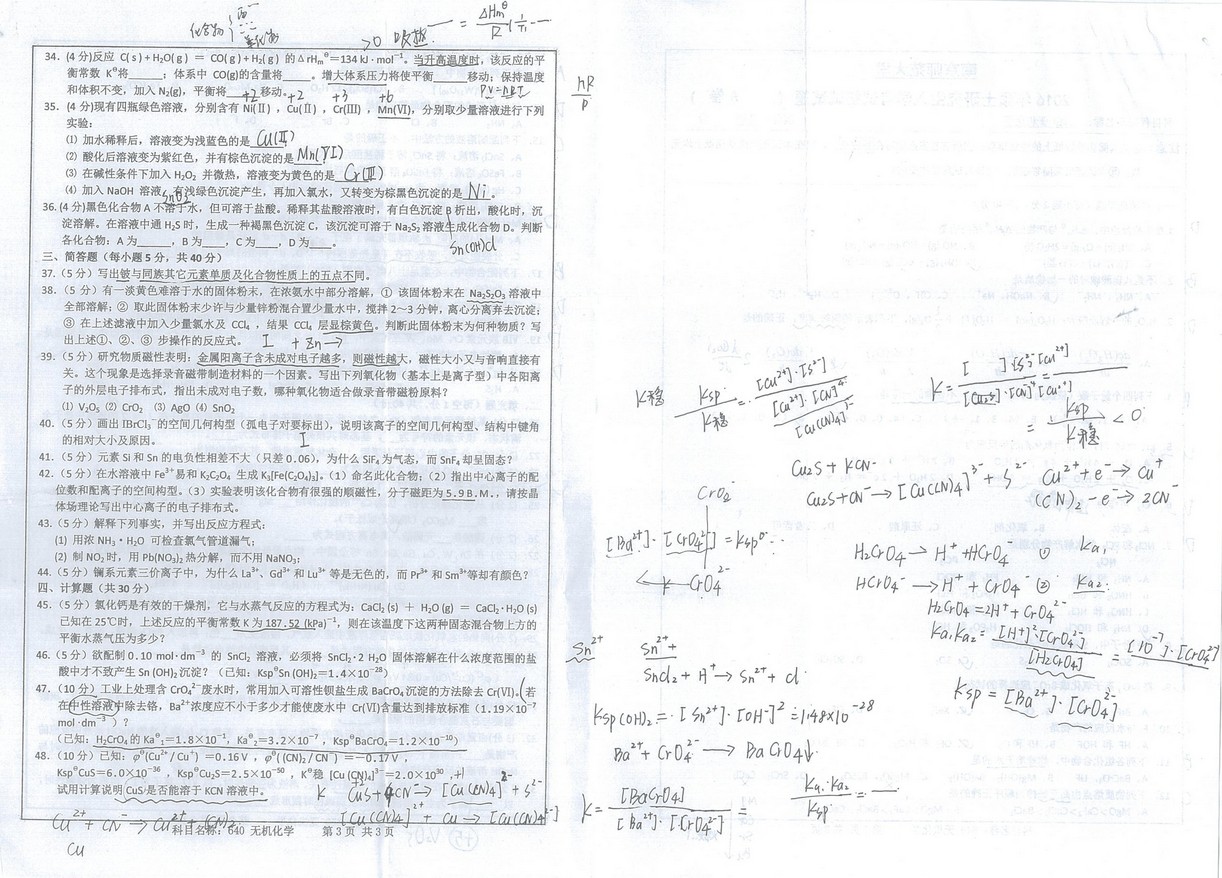 化合物
>0 吸热
34. (4 分)反应 C(s)+H₂O(g) = CO(g)+H₂(g) 的 ΔrHm⊖=134 kJ·mol⁻¹。当升高温度时，该反应的平
衡常数 K⊖将______；体系中 CO(g)的含量将_____。增大体系压力将使平衡______移动；保持温度
和体积不变，加入 N₂(g)，平衡将____移动。
PV=nRT
+2 +2 +3 +6
35. (4 分)现有四瓶绿色溶液，分别含有 Ni(II)，Cu(II)，Cr(III)，Mn(VI)，分别取少量溶液进行下列
实验：
(1) 加水稀释后，溶液变为浅蓝色的是 Cu(II)
(2) 酸化后溶液变为紫红色，并有棕色沉淀的是 Mn(VI)
(3) 在碱性条件下加入 H₂O₂ 并微热，溶液变为黄色的是 Cr(III)
(4) 加入 NaOH 溶液，有浅绿色沉淀产生，再加入氯水，又转变为棕黑色沉淀的是 Ni。
SnO₂
36. (4 分)黑色化合物 A 不溶于水，但可溶于盐酸。稀释其盐酸溶液时，有白色沉淀 B 析出，酸化时，沉
淀溶解。在溶液中通 H₂S 时，生成一种褐黑色沉淀 C，该沉淀可溶于 Na₂S₂ 溶液生成化合物 D。判断
各化合物：A 为______，B 为____，C 为____，D 为____。
Sn(OH)Cl
三、简答题（每小题 5 分，共 40 分）
37.（5 分）写出铍与同族其它元素单质及化合物性质上的五点不同。
38.（5 分）有一淡黄色难溶于水的固体粉末，在浓氨水中部分溶解，① 该固体粉末在 Na₂S₂O₃ 溶液中
全部溶解；② 取此固体粉末少许与少量锌粉混合置少量水中，搅拌 2～3 分钟，离心分离弃去沉淀；
③ 在上述滤液中加入少量氯水及 CCl₄ ，结果 CCl₄ 层显棕黄色。判断此固体粉末为何种物质？写
出上述①、②、③ 步操作的反应式。 I + Zn→
39.（5 分）研究物质磁性表明：金属阳离子含未成对电子越多，则磁性越大，磁性大小又与音响直接有
关。这个现象是选择录音磁带制造材料的一个因素。写出下列氧化物（基本上是离子型）中各阳离
子的外层电子排布式，指出未成对电子数，哪种氧化物适合做录音磁粉原料？
(1) V₂O₅ (2) CrO₂ (3) AgO (4) SnO₂
40.（5 分）画出 IBrCl₃⁻的空间几何构型（孤电子对要标出），说明该离子的空间几何构型、结构中键角
的相对大小及原因。
I
41.（5 分）元素 Si 和 Sn 的电负性相差不大（只差 0.06），为什么 SiF₄ 为气态，而 SnF₄ 却呈固态？
42.（5 分）在水溶液中 Fe³⁺易和 K₂C₂O₄ 生成 K₃[Fe(C₂O₄)₃]。（1）命名此化合物；（2）指出中心离子的配
位数和配离子的空间构型。（3）实验表明该化合物有很强的顺磁性，分子磁距为 5.9 B.M.，请按晶
体场理论写出中心离子的电子排布式。
43.（5 分）解释下列事实，并写出反应方程式：
(1) 用浓 NH₃·H₂O 可检查氯气管道漏气；
(2) 制 NO₂ 时，用 Pb(NO₃)₂ 热分解，而不用 NaNO₃；
44.（5 分）镧系元素三价离子中，为什么 La³⁺、Gd³⁺ 和 Lu³⁺ 等是无色的，而 Pr³⁺ 和 Sm³⁺等却有颜色？
四、计算题（共 30 分）
45.（5 分）氯化钙是有效的干燥剂，它与水蒸气反应的方程式为：CaCl₂ (s) + H₂O (g) = CaCl₂·H₂O (s)
已知在 25℃时，上述反应的平衡常数 K 为 187.52 (kPa)⁻¹，则在该温度下这两种固态混合物上方的
平衡水蒸气压为多少？
46.（5 分）欲配制 0.10 mol·dm⁻³ 的 SnCl₂ 溶液，必须将 SnCl₂·2 H₂O 固体溶解在什么浓度范围的盐
酸中才不致产生 Sn (OH)₂ 沉淀？（已知：Ksp⊖Sn (OH)₂=1.4×10⁻²⁸）
47.（10 分）工业上处理含 CrO₄²⁻废水时，常用加入可溶性钡盐生成 BaCrO₄ 沉淀的方法除去 Cr(VI)。若
在中性溶液中除去铬，Ba²⁺浓度应不小于多少才能使废水中 Cr(VI)含量达到排放标准（1.19×10⁻⁷
mol·dm⁻³ ）？
（已知：H₂CrO₄ 的 Ka⊖₁=1.8×10⁻¹，Ka⊖₂=3.2×10⁻⁷，Ksp⊖BaCrO₄=1.2×10⁻¹⁰）
48.（10 分）已知：φ⊖(Cu²⁺/ Cu⁺) =0.16 V，φ⊖((CN)₂/ CN⁻) =-0.17 V，
Ksp⊖CuS=6.0×10⁻³⁶，Ksp⊖Cu₂S=2.5×10⁻⁵⁰，K⊖稳 [Cu (CN)₄]³⁻=2.0×10³⁰，
试用计算说明 CuS 是否能溶于 KCN 溶液中。
K CuS+4CN⁻→ [Cu(CN)₄]²⁻+S²⁻
科目名称：640 无机化学 第 3 页 共 3 页
[Cu(CN)₄]
Cu
nR
P
K稳
Ksp
K稳
[Cu²⁺]·[S²⁻]
Ksp
K稳 <0
Cu₂S+KCN
Cu₂S+CN⁻→[Cu(CN)₄]³⁻+S²⁻
Cu²⁺+e⁻→Cu⁺
(CN)₂-e⁻→2CN⁻
CrO₂⁻
[Ba²⁺]·[CrO₄²⁻]=Ksp
CrO₄²⁻
H₂CrO₄→H⁺+HCrO₄⁻ ① Ka₁
HCrO₄⁻→H⁺+CrO₄⁻ ② Ka₂
H₂CrO₄=2H⁺+CrO₄²⁻
Ka₁Ka₂=[H⁺]²·[CrO₄²⁻]/[H₂CrO₄]
Ksp=[Ba²⁺]·[CrO₄²⁻]
Sn²⁺
Sn²⁺
SnCl₂+H⁺→Sn²⁺+Cl⁻
Ksp(OH)₂=[Sn²⁺]·[OH⁻]²=1.48×10⁻²⁸
Ba²⁺+CrO₄²⁻→BaCrO₄↓
K=[BaCrO₄]/[Ba²⁺]·[CrO₄²⁻]=
Ka₁·Ka₂/Ksp=